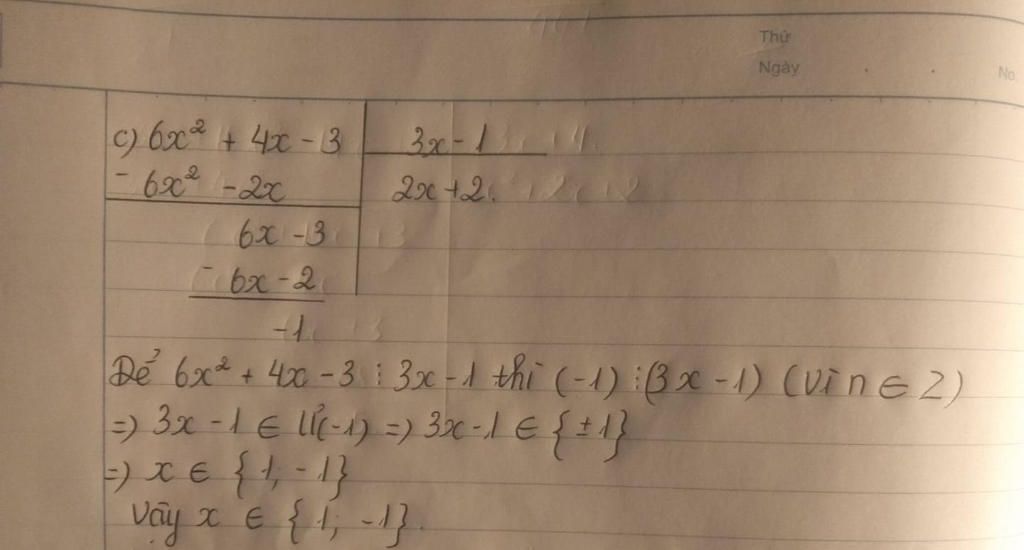 Thứ
Ngày
No.
c) 6x² + 4x - 3 3x - 1
- 6x² - 2x 2x + 2.
6x - 3
- 6x - 2
-1
Để 6x² + 4x - 3 ⋮ 3x - 1 thì (-1) ⋮ (3x - 1) (vì n ∈ Z)
=) 3x - 1 ∈ Ư(-1) =) 3x - 1 ∈ {±1}
=) x ∈ {1, -1}
Vậy x ∈ {1; -1}.